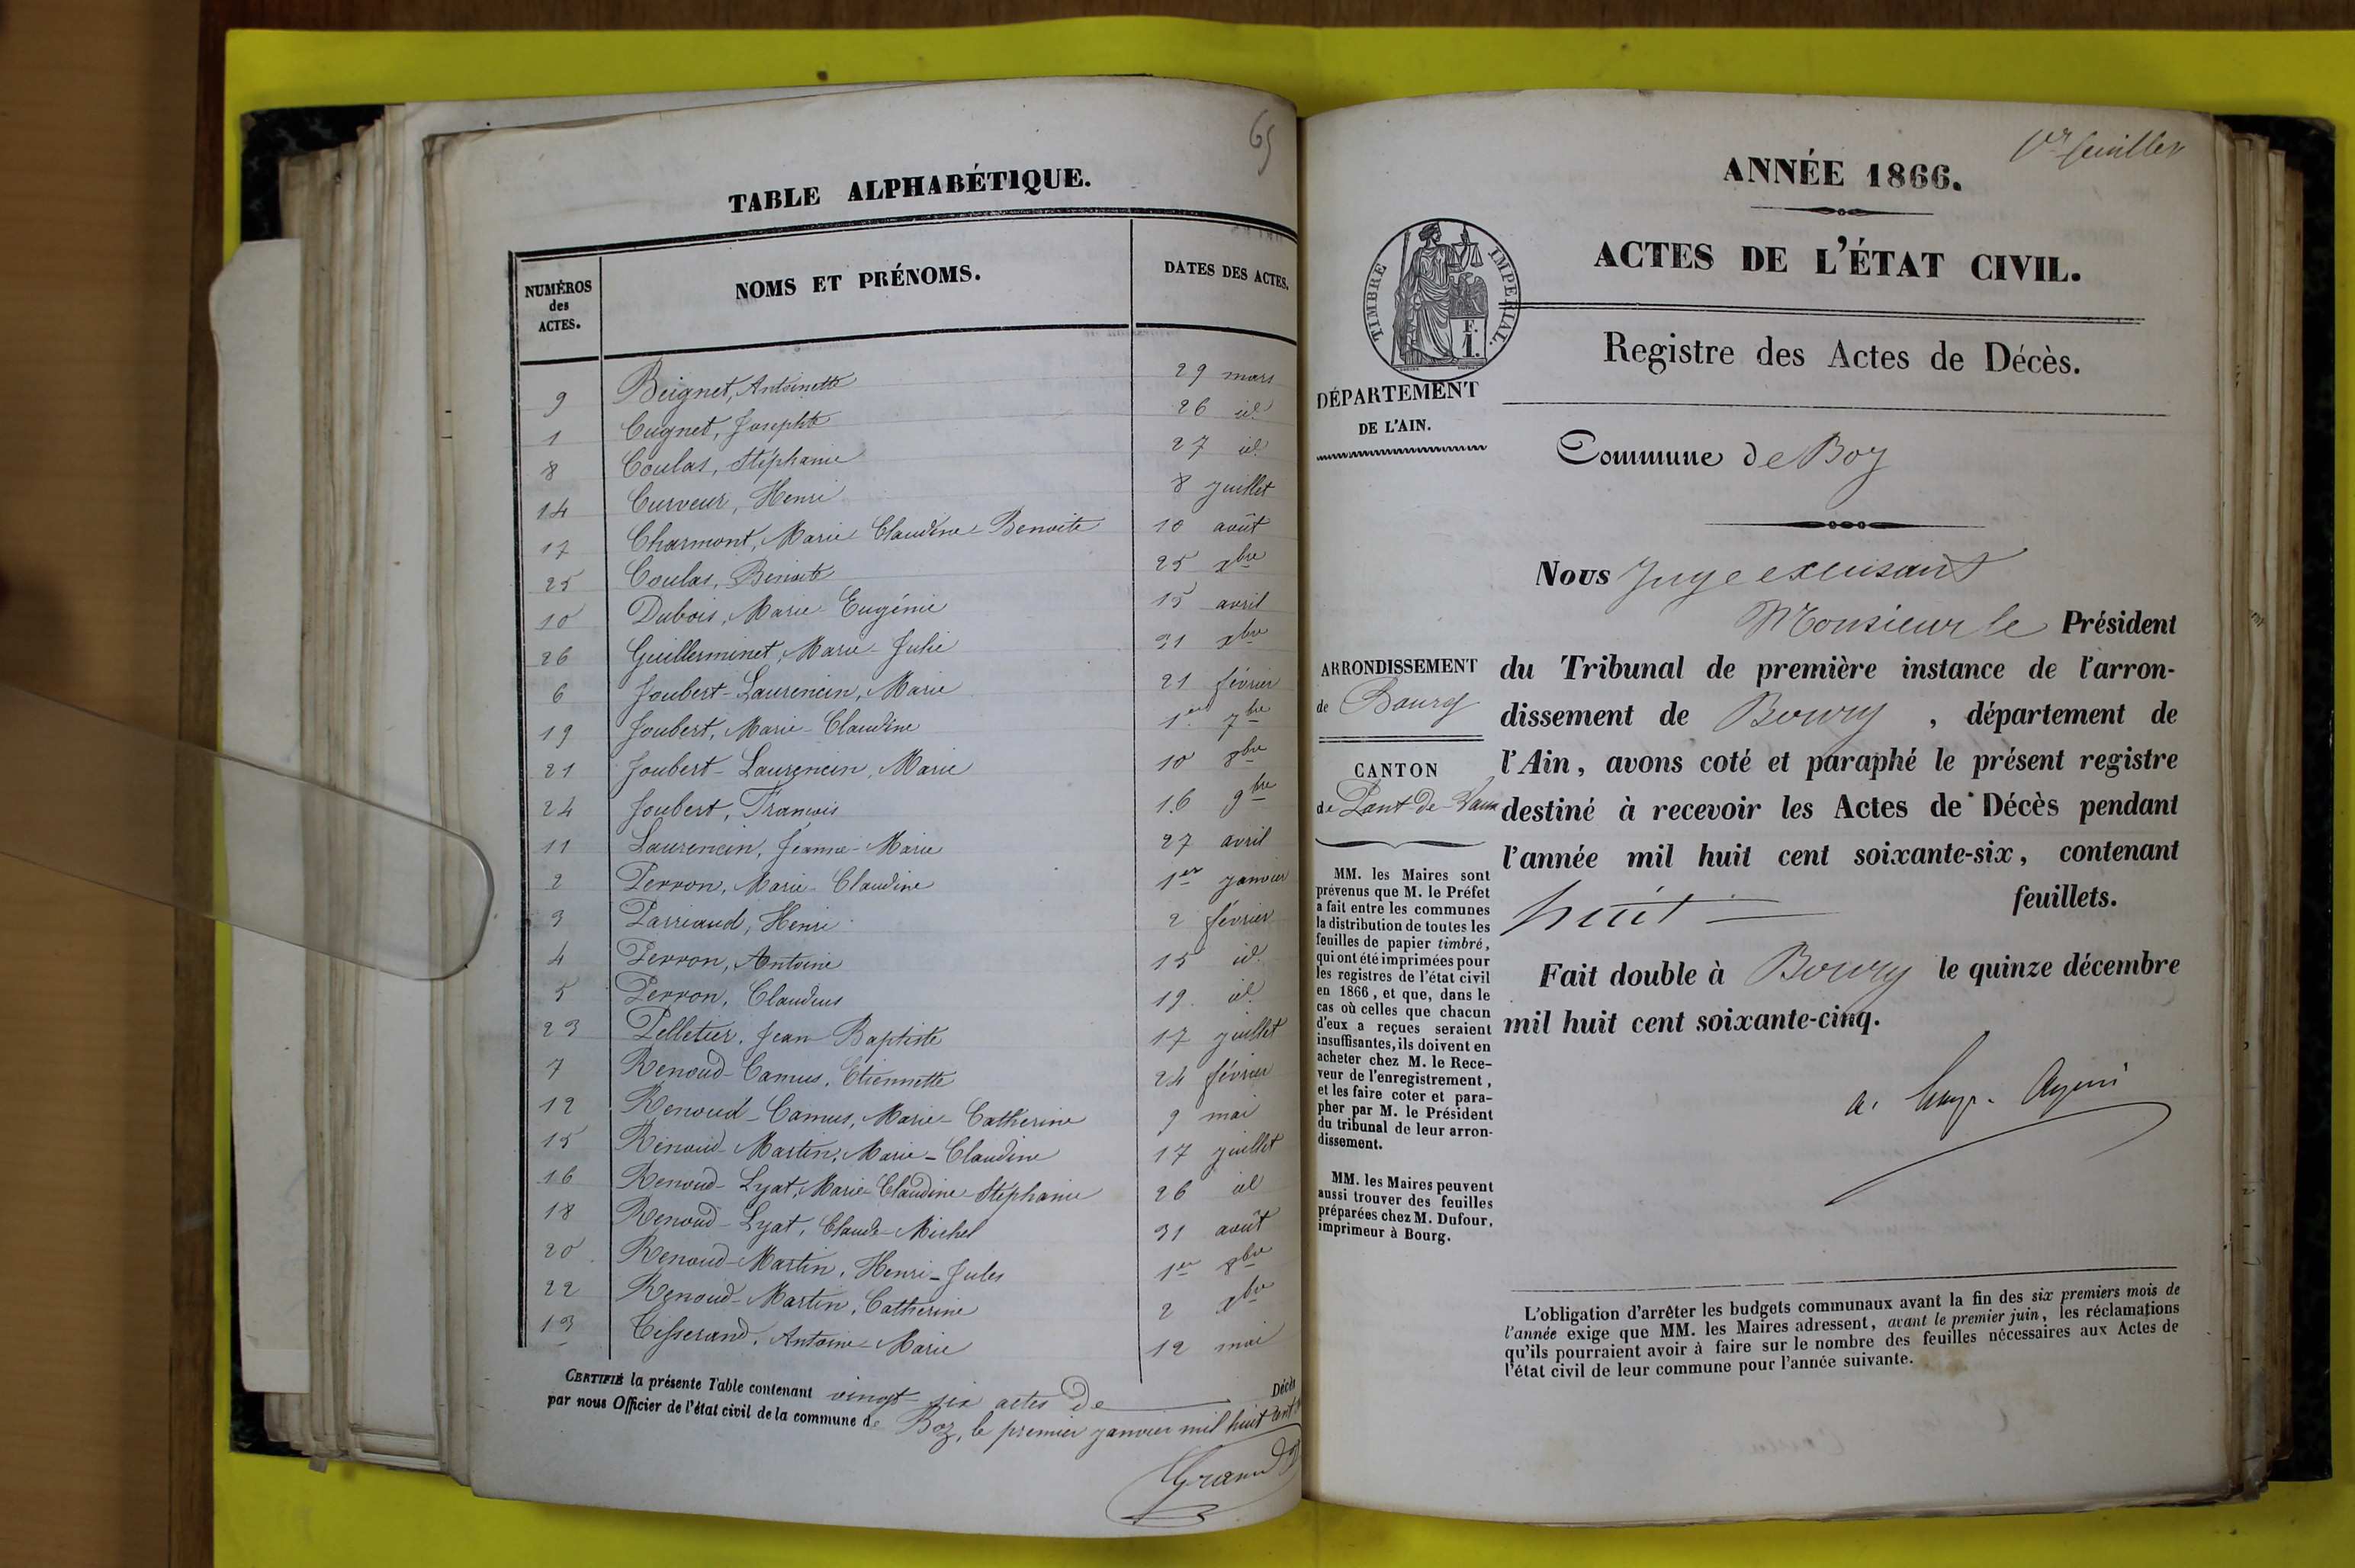 65
TABLE ALPHABÉTIQUE.
NUMÉROS des ACTES. NOMS ET PRÉNOMS. DATES DES ACTES.
9 Beignet, Antoinette 29 mars
1 Cugnet, Josephte 26 id.
8 Coulas, Stéphanie 27 id.
14 Curveur, Henri 8 juillet
17 Charmont, Marie Claudine-Benoite 10 août
25 Coulas, Benoite 25 xbre
10 Dubois, Marie Eugénie 15 avril
26 Guillerminet, Marie-Julie 31 xbre
6 Joubert-Laurencin, Marie 21 février
19 Joubert, Marie-Claudine 1er 7bre
21 Joubert-Laurencin, Marie 10 8bre
24 Joubert, François 16 9bre
11 Laurencin, Jeanne-Marie 27 avril
2 Perron, Marie-Claudine 1er janvier
3 Parriaud, Henri 2 février
4 Perron, Antoine 15 id.
5 Perron, Claudius 19. id.
23 Pelletier, Jean Baptiste 17 juillet
7 Renoud-Camus, Etiennette 24 février
12 Renoud-Camus, Marie-Catherine 9 mai
15 Renoud-Martin, Marie-Claudine 17 juillet
16 Renoud-Lyat, Marie-Claudine-Stéphanie 26 id
18 Renoud-Lyat, Claude-Michel 31 août
20 Renoud-Martin, Henri-Jules 1er 8bre
22 Renoud-Martin, Catherine 2 xbre
13 Tisserand, Antoine-Marie 12 mai
CERTIFIÉ la présente Table contenant vingt-six actes de Décès
par nous Officier de l'état civil de la commune de Boz, le premier janvier mil huit cent
Grand
1er feuillet
ANNÉE 1866.
ACTES DE L'ÉTAT CIVIL.
TIMBRE IMPERIAL.
F.
I.
Registre des Actes de Décès.
DÉPARTEMENT
DE L'AIN.
Commune de Boz
ARRONDISSEMENT
de Bourg
CANTON
de Pont-de-Vaux
MM. les Maires sont
prévenus que M. le Préfet
a fait entre les communes
la distribution de toutes les
feuilles de papier timbré,
qui ont été imprimées pour
les registres de l'état civil
en 1866, et que, dans le
cas où celles que chacun
d'eux a reçues seraient
insuffisantes, ils doivent en
acheter chez M. le Rece-
veur de l'enregistrement,
et les faire coter et para-
pher par M. le Président
du tribunal de leur arron-
dissement.
MM. les Maires peuvent
aussi trouver des feuilles
préparées chez M. Dufour,
imprimeur à Bourg.
Nous Juge
Monsieur le Président
du Tribunal de première instance de l'arron-
dissement de Bourg, département de
l'Ain, avons coté et paraphé le présent registre
destiné à recevoir les Actes de Décès pendant
l'année mil huit cent soixante-six, contenant
huit feuillets.
Fait double à Bourg le quinze décembre
mil huit cent soixante-cinq.
L'obligation d'arrêter les budgets communaux avant la fin des six premiers mois de
l'année exige que MM. les Maires adressent, avant le premier juin, les réclamations
qu'ils pourraient avoir à faire sur le nombre des feuilles nécessaires aux Actes de
l'état civil de leur commune pour l'année suivante.